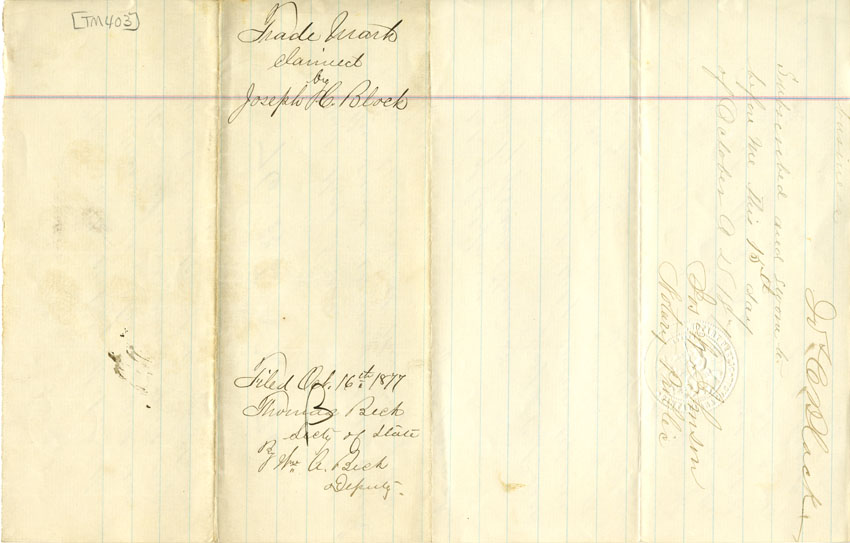 [TM403]
Trade Mark
claimed
by
Joseph C. Block
Filed Oct. 16th 1877
Thomas Beck
Secty of State
By Wm. A. Beck
Deputy.
Subscribed and Sworn to
before me this 15th day
of October A D 187
Jos
Notary Public